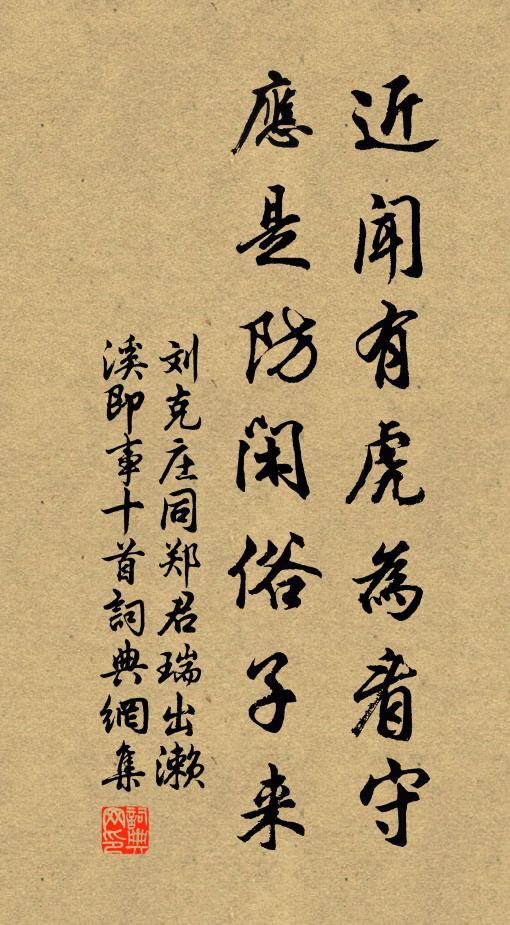 近闻有虎為看守
應是防閑俗子来
刘克庄同郑君瑞出濑
溪即事十首詞典網集
詞典網印